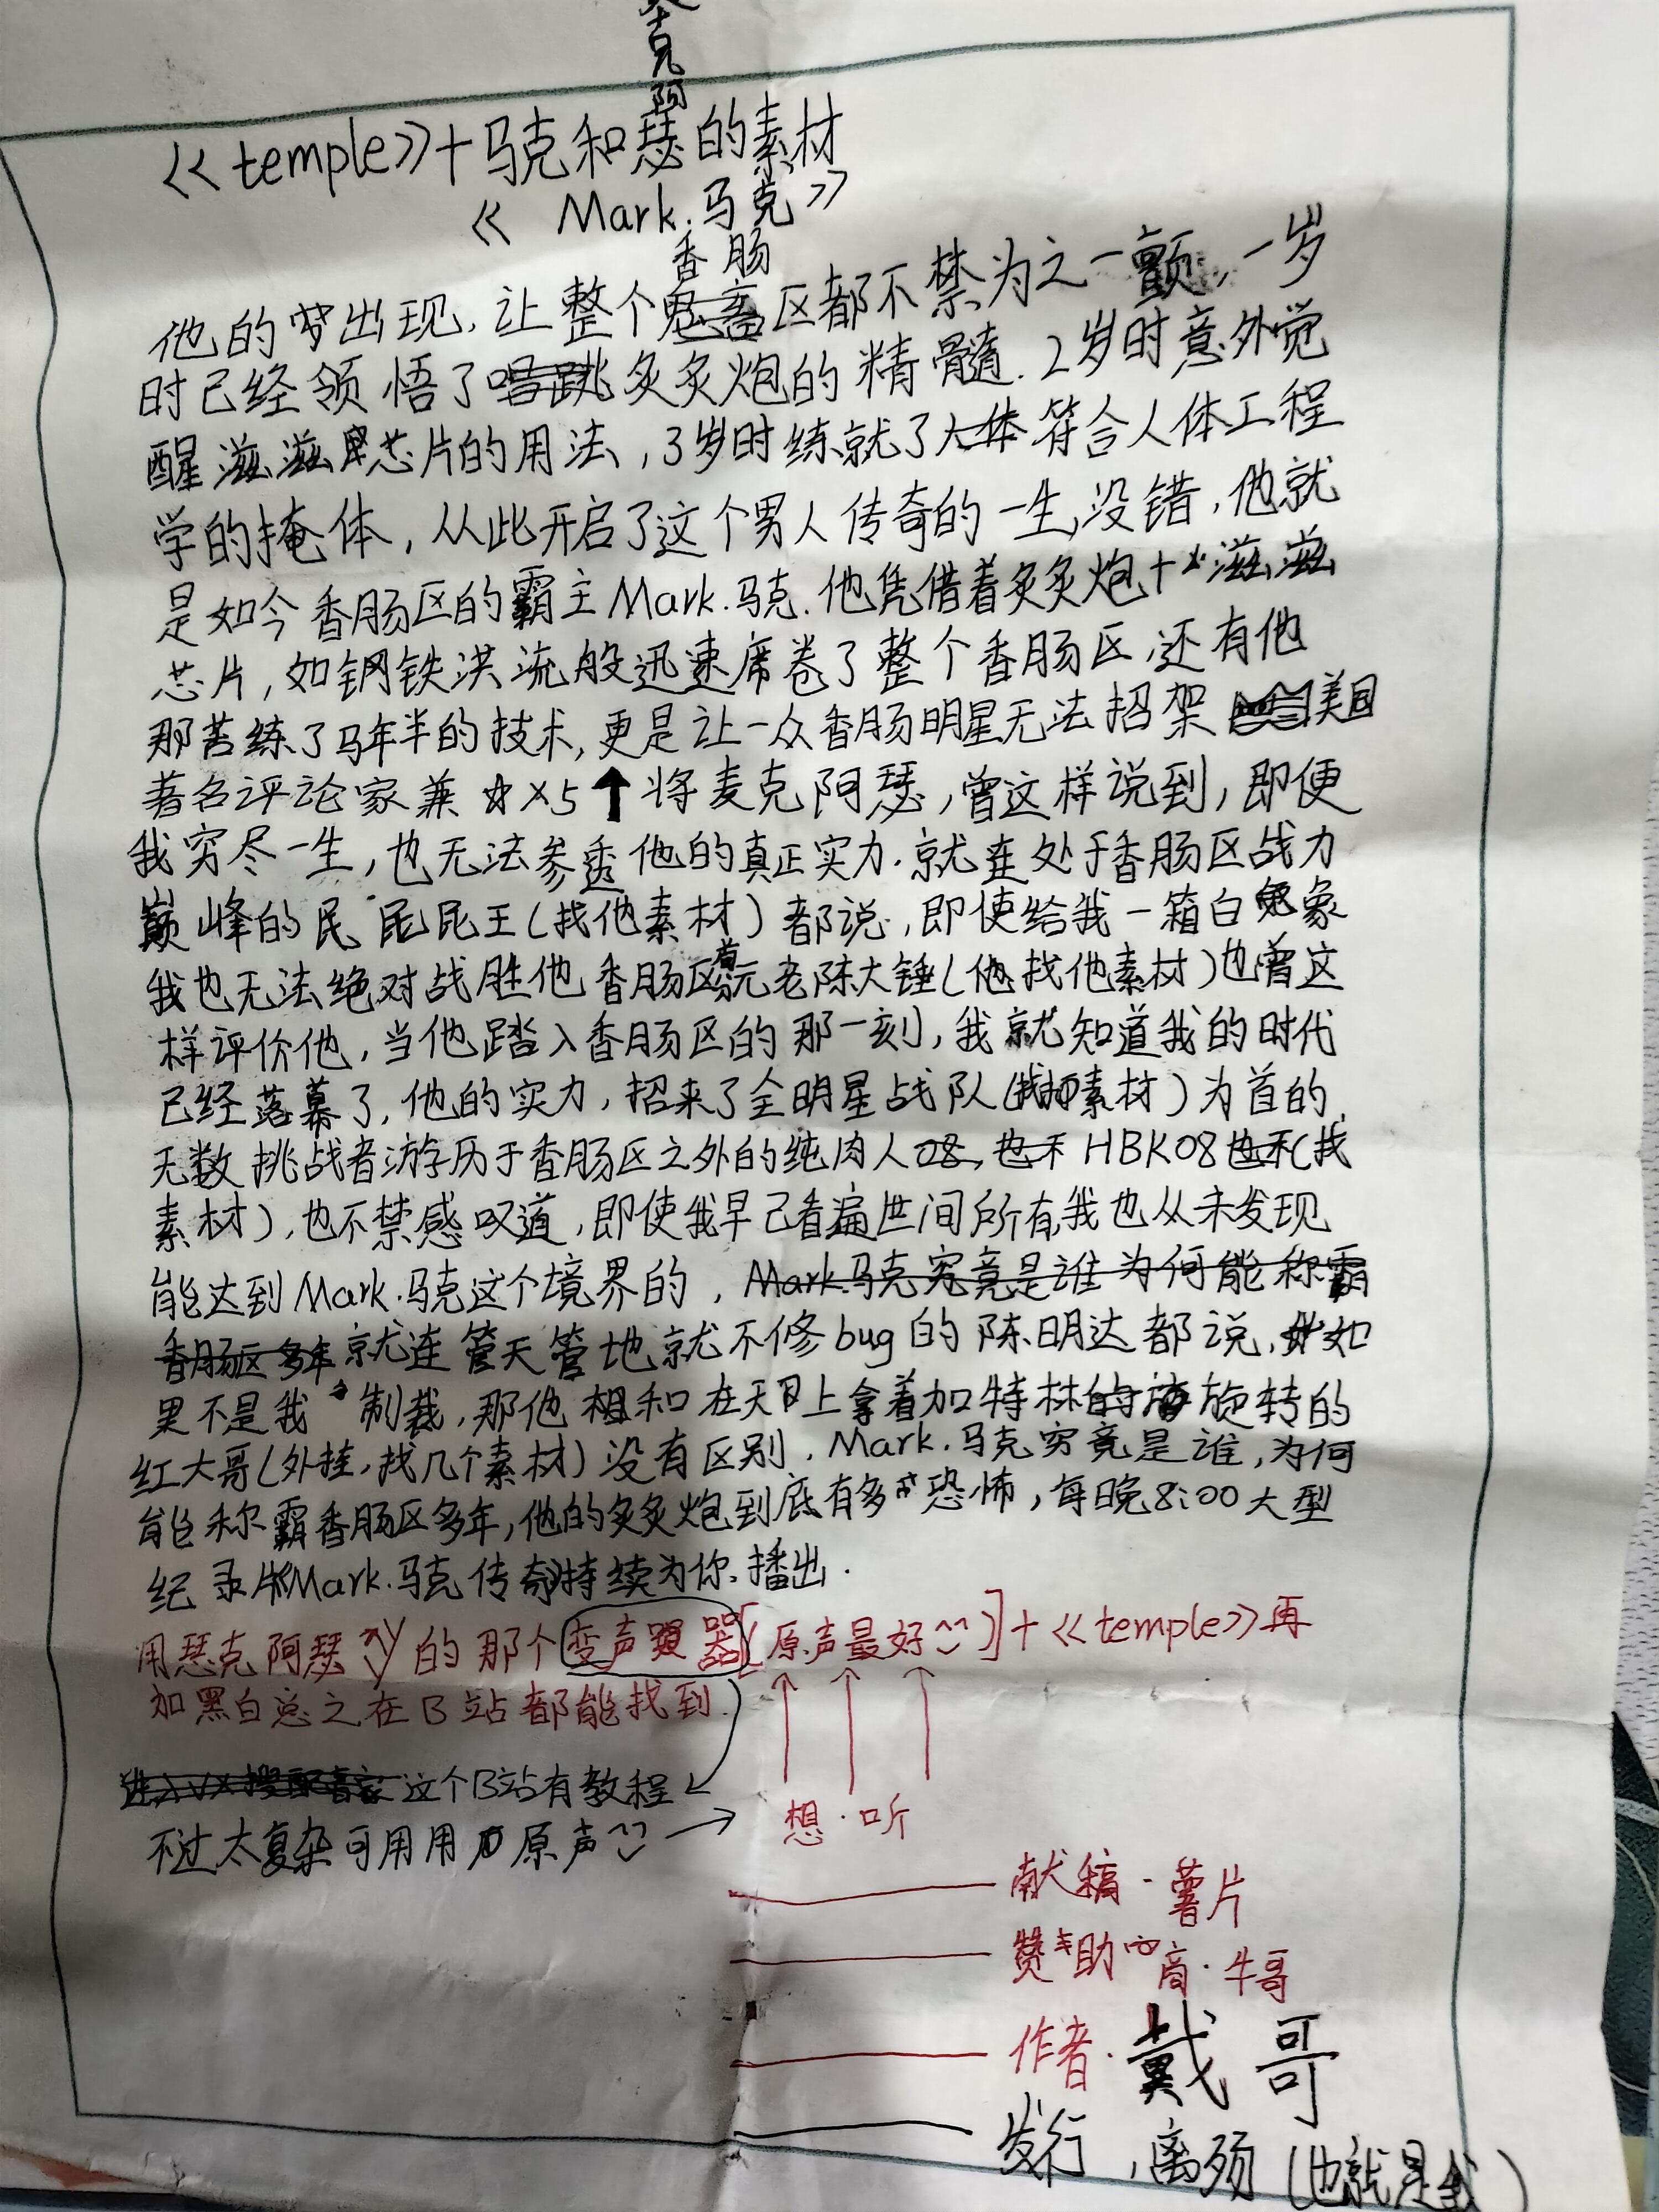 克
阿
《temple》+马克和瑟的素材
《Mark.马克》
香肠
他的出现,让整个鬼畜区都不禁为之一颤,一岁
时已经领悟了唱跳炙炙炮的精髓.2岁时意外觉
醒滋滋芯片的用法,3岁时练就了大体符合人体工程
学的掩体,从此开启了这个男人传奇的一生,没错,他就
是如今香肠区的霸主Mark.马克.他凭借着炙炙炮+滋滋
芯片,如钢铁洪流般迅速席卷了整个香肠区,还有他
那苦练了马年半的技术,更是让一众香肠明星无法招架 美国
著名评论家兼☆×5↑将麦克阿瑟,曾这样说到,即便
我穷尽一生,也无法参透他的真正实力.就连处于香肠区战力
巅峰的民昆昆王(找他素材)都说,即使给我一箱白象
我也无法绝对战胜他香肠区首元老陈大锤(他找他素材)也曾这
样评价他,当他踏入香肠区的那一刻,我就知道我的时代
已经落幕了,他的实力,招来了全明星战队(找素材)为首的
无数挑战者游历于香肠区之外的纯肉人08,也不HBK08也不(找
素材),也不禁感叹道,即使我早已看遍世间所有,我也从未发现
能达到Mark.马克这个境界的,Mark.马克究竟是谁为何能称霸
香肠区多年就连管天管地就不修bug的陈明达都说,如
果不是我制裁,那他和在天上拿着加特林的旋转的
红大哥(外挂,找几个素材)没有区别,Mark.马克究竟是谁,为何
能称霸香肠区多年,他的炙炙炮到底有多恐怖,每晚8:00大型
纪录片《Mark.马克传奇》持续为你播出.
用瑟克阿瑟的那个变声器[原声最好]+《temple》再
加黑白总之在B站都能找到
这个B站有教程
不过太复杂可用用原声
想·听
献稿·薯片
赞助商·牛哥
作者·戴哥
发行,离殇(也就是我)